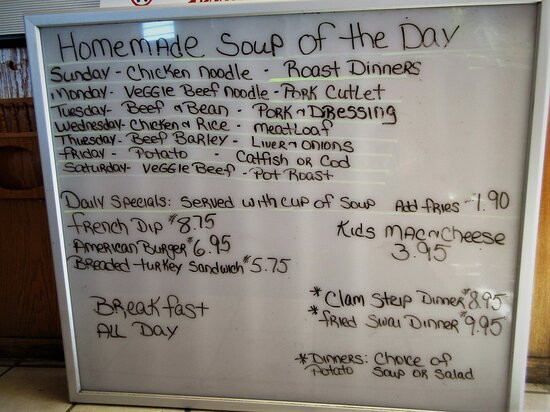 Homemade Soup of the Day
Sunday - Chicken Noodle - Roast Dinners
Monday - Veggie Beef Noodle - Pork Cutlet
Tuesday - Beef & Bean - Pork & Dressing
Wednesday - Chicken & Rice - Meatloaf
Thursday - Beef Barley - Liver & Onions
Friday - Potato - Catfish or Cod
Saturday - Veggie Beef - Pot Roast
Daily Specials: Served with cup of Soup Add fries - 1.90
French Dip $8.75
American Burger $6.95
Breaded turkey Sandwich $5.75
Kids Mac n Cheese
3.95
Breakfast
All Day
*Clam Strip Dinner $8.95
*Fried Swai Dinner $9.95
*Dinners: Choice of
Potato Soup or Salad